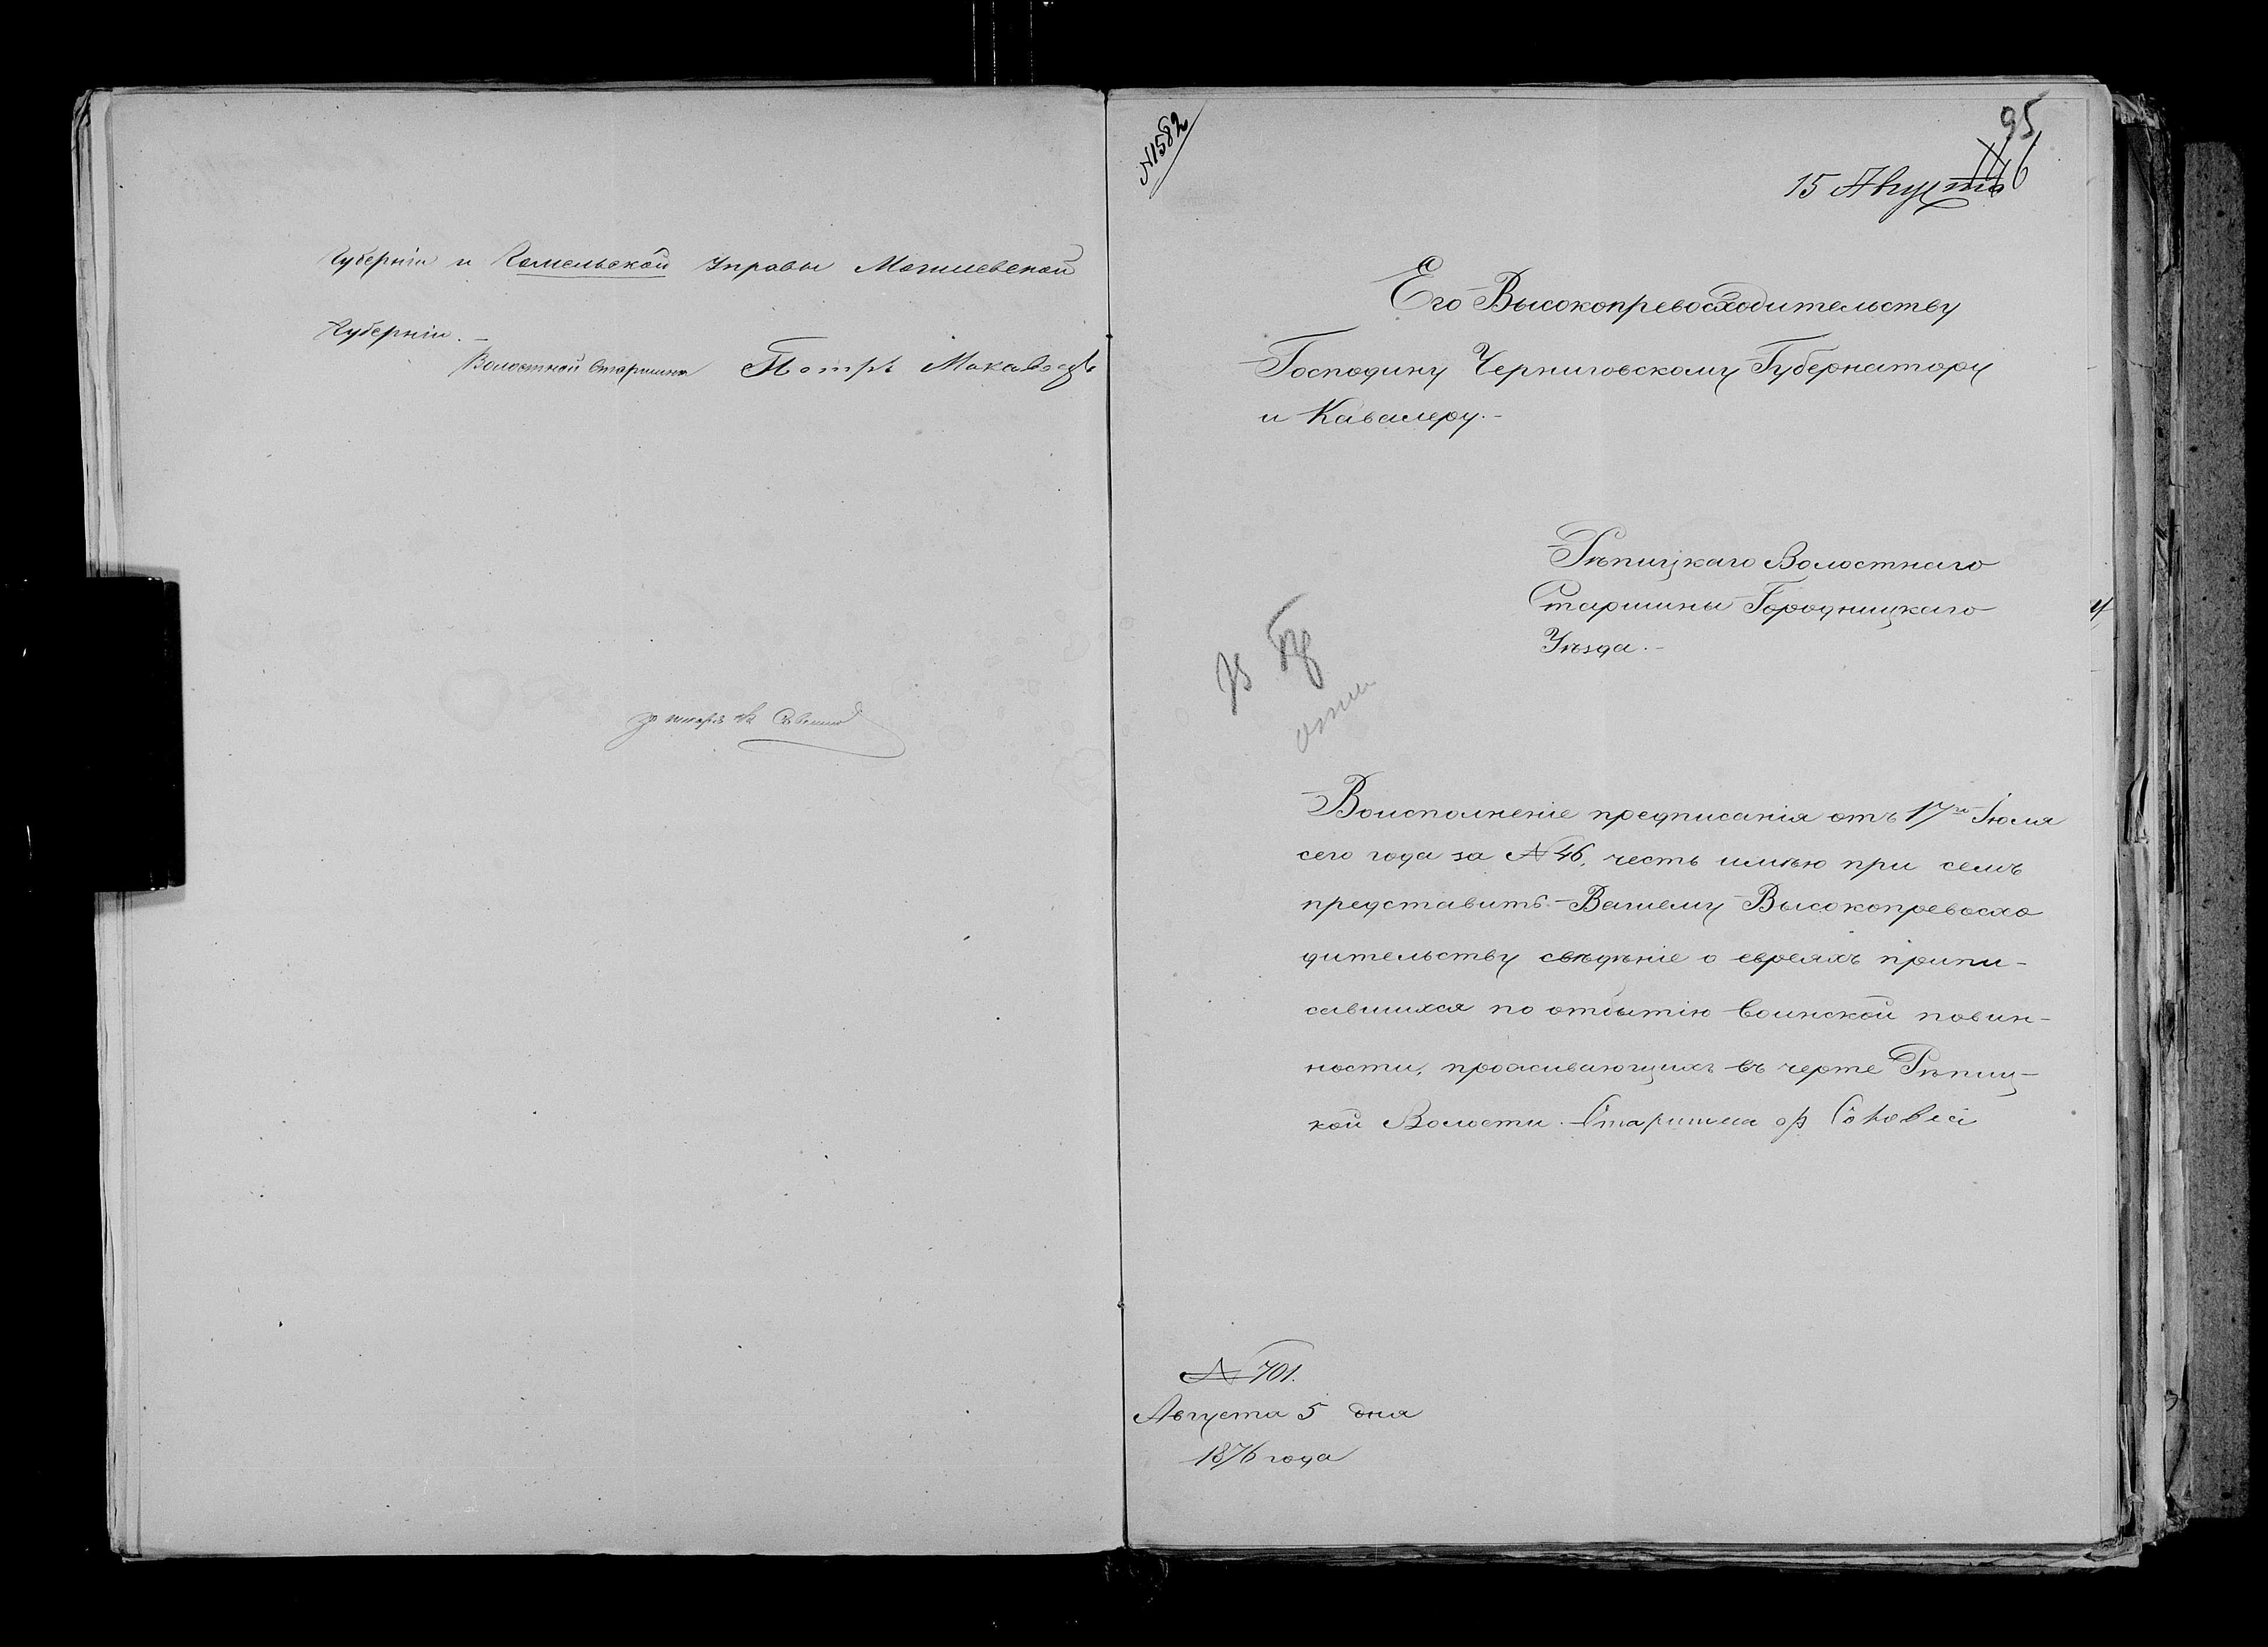 Губерніи и Гомельской Управы Могилевской
Губерніи.
Волостной Старшина Петръ
№ 1582
95
15 Августа
Его Высокопревосходительству
Господину Черниговскому Губернатору
и Кавалеру.-
Рѣпицкаго Волостнаго
Старшины Городницкаго
Уѣзда.-
Воисполненіе предписанія отъ 17го Іюля
сего года за № 46, честь имѣю при семъ
представить Вашему Высокопревосхо
дительству свѣдѣніе о евреяхъ припи-
савшихся по отбытію воинской повин-
ности, проживающихъ въ черте Рѣпиц-
кой Волости. Старшина
№ 701.
Августа 5 дня
1876 года